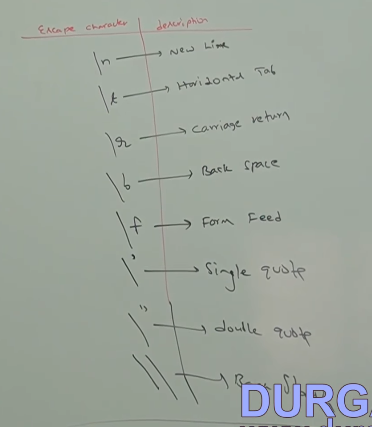 Escape character description
\n → New Line
\t → Horizontal Tab
\r → Carriage return
\b → Back Space
\f → Form Feed
\' → Single quote
\" → double quote
\\ →
DURG